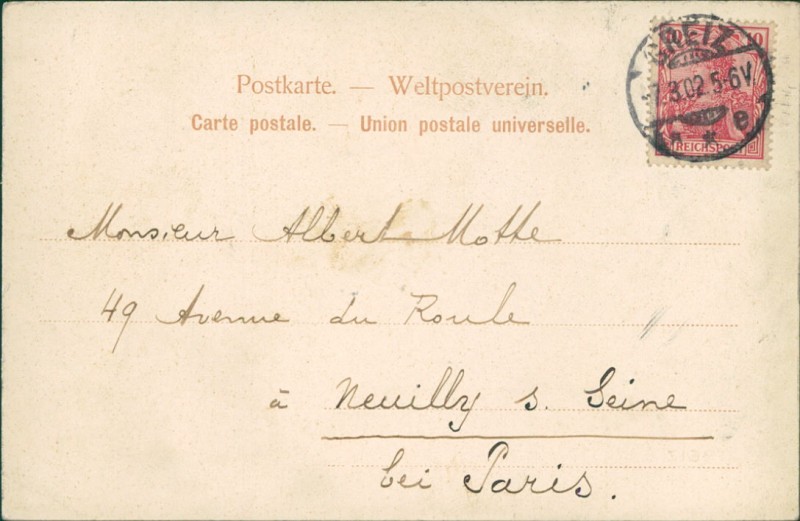 10 10
GREIZ
3.02 5-6V
e
REICHSPOST
Postkarte. — Weltpostverein.
Carte postale. — Union postale universelle.
Monsieur Albert Motte
49 Avenue du Roule
à Neuilly s. Seine
bei Paris.